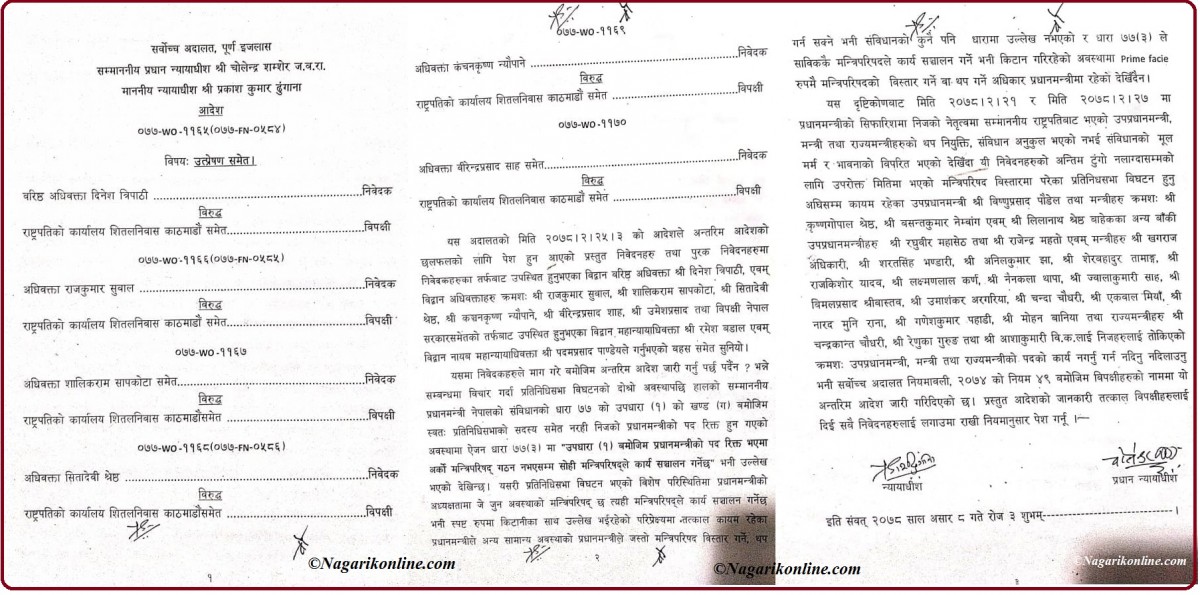 सर्वोच्च अदालत, पूर्ण इजलास
सम्माननीय प्रधान न्यायाधीश श्री चोलेन्द्र शम्शेर ज.ब.रा.
माननीय न्यायाधीश श्री प्रकाश कुमार ढुंगाना
आदेश
०७७-WO-११६५(०७७-FN-०५८४)
विषयः उत्प्रेषण समेत।
वरिष्ठ अधिवक्ता दिनेश त्रिपाठी ........................................निवेदक
विरुद्ध
राष्ट्रपतिको कार्यालय शितलनिवास काठमाडौं समेत........................................विपक्षी
०७७-WO-११६६(०७७-FN-०५८५)
अधिवक्ता राजकुमार सुवाल ........................................निवेदक
विरुद्ध
राष्ट्रपतिको कार्यालय शितलनिवास काठमाडौं समेत........................................विपक्षी
०७७-WO-११६७
अधिवक्ता शालिकराम सापकोटा समेत........................................निवेदक
विरुद्ध
राष्ट्रपतिको कार्यालय शितलनिवास काठमाडौंसमेत........................................विपक्षी
०७७-WO-११६८(०७७-FN-०५८६)
अधिवक्ता सितादेवी श्रेष्ठ ........................................निवेदक
विरुद्ध
राष्ट्रपतिको कार्यालय शितलनिवास काठमाडौंसमेत........................................विपक्षी
१
©Nagarikonline.com
०७७-WO-११६९
अधिवक्ता कंचनकृष्ण न्यौपाने ........................................निवेदक
विरुद्ध
राष्ट्रपतिको कार्यालय शितलनिवास काठमाडौं समेत ........................................विपक्षी
०७७-WO-११७०
अधिवक्ता वीरेन्द्रप्रसाद साह समेत........................................निवेदक
विरुद्ध
राष्ट्रपतिको कार्यालय शितलनिवास काठमाडौं समेत ........................................विपक्षी
यस अदालतको मिति २०७८।२।२५।३ को आदेशले अन्तरिम आदेशको
छलफलको लागि पेश हुन आएको प्रस्तुत निवेदनहरु तथा पुरक निवेदनहरुमा
निवेदकहरुका तर्फबाट उपस्थित हुनुभएका विद्वान वरिष्ठ अधिवक्ता श्री दिनेश त्रिपाठी, एवम्
विद्वान अधिवक्ताहरु क्रमशः श्री राजकुमार सुवाल, श्री शालिकराम सापकोटा, श्री सितादेवी
श्रेष्ठ, श्री कञ्चनकृष्ण न्यौपाने, श्री वीरेन्द्रप्रसाद शाह, श्री उमेशप्रसाद तथा विपक्षी नेपाल
सरकारसमेतको तर्फबाट उपस्थित हुनुभएका विद्वान महान्यायाधिवक्ता श्री रमेश बडाल एवम्
विद्वान नायब महान्यायाधिवक्ता श्री पदमप्रसाद पाण्डेयले गर्नुभएको बहस समेत सुनियो।
यसमा निवेदकहरुले माग गरे बमोजिम अन्तरिम आदेश जारी गर्नु पर्छ पर्दैन ? भन्ने
सम्बन्धमा विचार गर्दा प्रतिनिधिसभा विघटनको दोश्रो अवस्थापछि हालको सम्माननीय
प्रधानमन्त्री नेपालको संविधानको धारा ७७ को उपधारा (१) को खण्ड (ग) बमोजिम
स्वतः प्रतिनिधिसभाको सदस्य समेत नरही निजको प्रधानमन्त्रीको पद रिक्त हुन गएको
अवस्थामा ऐजन धारा ७७(३) मा "उपधारा (१) बमोजिम प्रधानमन्त्रीको पद रिक्त भएमा
अर्को मन्त्रिपरिषद् गठन नभएसम्म सोही मन्त्रिपरिषद्ले कार्य सञ्चालन गर्नेछ" भनी उल्लेख
भएको देखिन्छ। यसरी प्रतिनिधिसभा विघटन भएको विशेष परिस्थितिमा प्रधानमन्त्रीको
अध्यक्षतामा जे जुन अवस्थाको मन्त्रिपरिषद् छ त्यही मन्त्रिपरिषद्ले कार्य सञ्चालन गर्नेछ
भनी स्पष्ट रुपमा किटानीका साथ उल्लेख भईरहेको परिप्रेक्ष्यमा तत्काल कायम रहेका
प्रधानमन्त्रीले अन्य सामान्य अवस्थाको प्रधानमन्त्रीले जस्तो मन्त्रिपरिषद विस्तार गर्ने, थप
२
©Nagarikonline.com
गर्न सक्ने भनी संविधानको कुनै पनि धारामा उल्लेख नभएको र धारा ७७(३) ले
साविककै मन्त्रिपरिषदले कार्य सञ्चालन गर्ने भनी किटान गरिरहेको अवस्थामा Prime facie
रुपमै मन्त्रिपरिषदको विस्तार गर्ने वा थप गर्ने अधिकार प्रधानमन्त्रीमा रहेको देखिँदैन।
यस दृष्टिकोणबाट मिति २०७८।२।२१ र मिति २०७८।२।२७ मा
प्रधानमन्त्रीको सिफारिशमा निजको नेतृत्वमा सम्माननीय राष्ट्रपतिबाट भएको उपप्रधानमन्त्री,
मन्त्री तथा राज्यमन्त्रीहरुको थप नियुक्ति, संविधान अनुकुल भएको नभई संविधानको मूल
मर्म र भावनाको विपरित भएको देखिँदा यी निवेदनहरुको अन्तिम टुंगो नलाग्दासम्मको
लागि उपरोक्त मितिमा भएको मन्त्रिपरिषद विस्तारमा परेका प्रतिनिधिसभा विघटन हुनु
अघिसम्म कायम रहेका उपप्रधानमन्त्री श्री विष्णुप्रसाद पौडेल तथा मन्त्रीहरु क्रमशः श्री
कृष्णगोपाल श्रेष्ठ, श्री बसन्तकुमार नेम्वांग एवम् श्री लिलानाथ श्रेष्ठ बाहेकका अन्य बाँकी
उपप्रधानमन्त्रीहरु श्री रघुवीर महासेठ तथा श्री राजेन्द्र महतो एवम् मन्त्रीहरु श्री खगराज
अधिकारी, श्री शरतसिंह भण्डारी, श्री अनिलकुमार झा, श्री शेरबहादुर तामाङ्ग, श्री
राजकिशोर यादव, श्री लक्ष्मणलाल कर्ण, श्री नैनकला थापा, श्री ज्वालाकुमारी साह, श्री
विमलप्रसाद श्रीवास्तव, श्री उमाशंकर अरगरिया, श्री चन्दा चौधरी, श्री एकवाल मियाँ, श्री
नारद मुनि राना, श्री गणेशकुमार पहाडी, श्री मोहन बानिया तथा राज्यमन्त्रीहरु श्री
चन्द्रकान्त चौधरी, श्री रेणुका गुरुङ तथा श्री आशाकुमारी वि.क.लाई निजहरुलाई तोकिएको
क्रमशः उपप्रधानमन्त्री, मन्त्री तथा राज्यमन्त्रीको पदको कार्य नगर्नु गर्न नदिनु नदिलाउनु
भनी सर्वोच्च अदालत नियमावली, २०७४ को नियम ४९ बमोजिम विपक्षीहरुको नाममा यो
अन्तरिम आदेश जारी गरिदिएको छ। प्रस्तुत आदेशको जानकारी तत्काल विपक्षीहरुलाई
दिई सबै निवेदनहरुलाई लगाउमा राखी नियमानुसार पेश गर्नू ।
न्यायाधीश
प्रधान न्यायाधीश
इति संवत् २०७८ साल असार ८ गते रोज ३ शुभम्------------------------।
३
©Nagarikonline.com